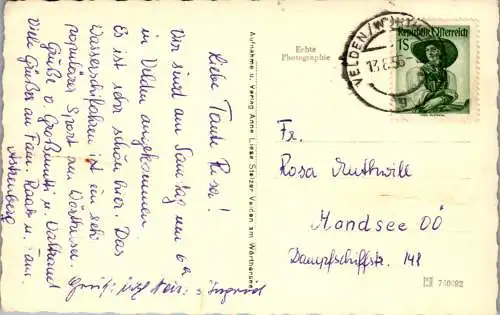 Liebe Tante Resa!
Wir sind am Samstag um 6h
in Velden angekommen.
Es ist sehr schön hier. Das
Wasserschifahren ist ein sehr
populärer Sport am Wörthersee.
Grüße v. Großmutti u. Waltraut
Viele Grüße an Fam. Haas u. Fam.
Askenberg
Ingrid
Aufnahme u. Verlag Anne Liese Stelzer-Velden am Wörthersee
Echte
Photographie
VELDEN/WÖRTH
13.8.56
Republik Österreich
1S
Fr.
Rosa Ruthwill
Mondsee OÖ
Dampfschiffstr. 148
740692